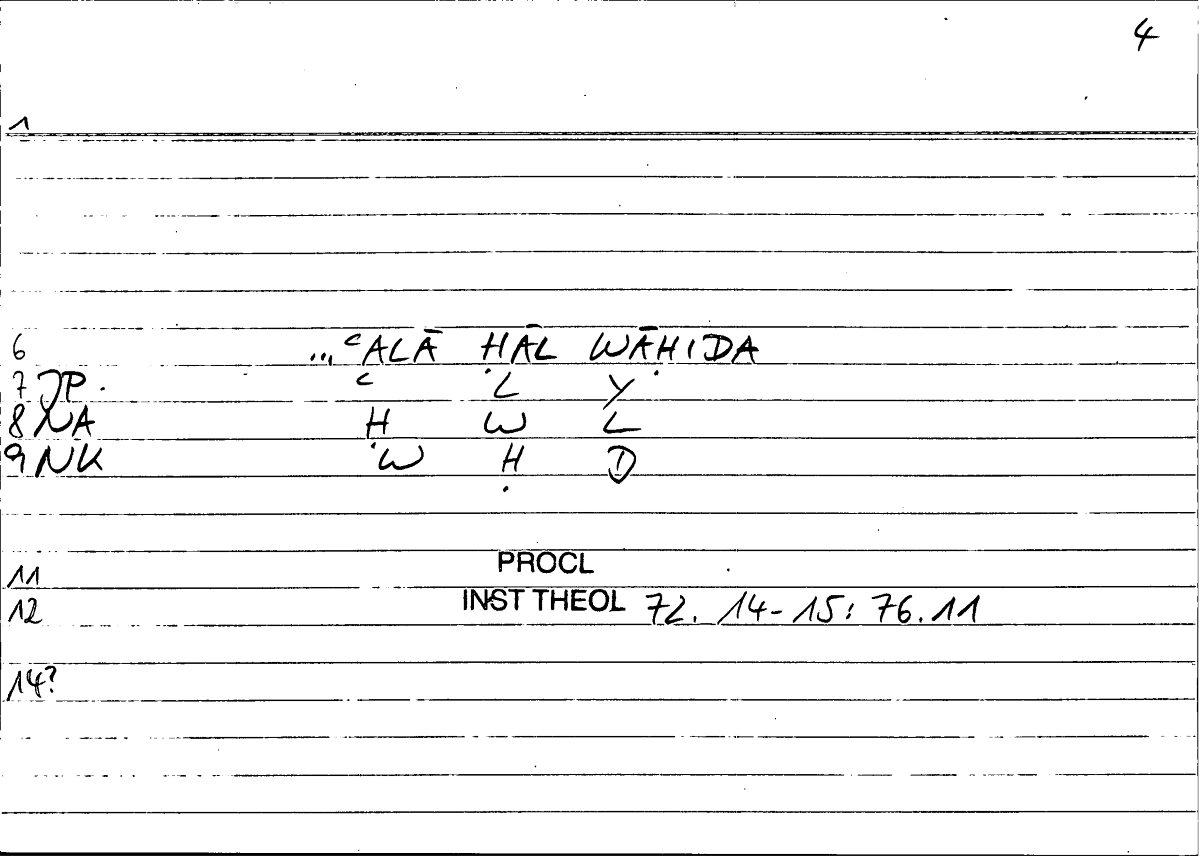 4
1
6 ... ʿALĀ ḤĀL WĀḤIDA
7 JP. ʿ L Y
8 NA Ḥ W L
9 NK W Ḥ D
11 PROCL
12 INST THEOL 72. 14-15; 76.11
14?